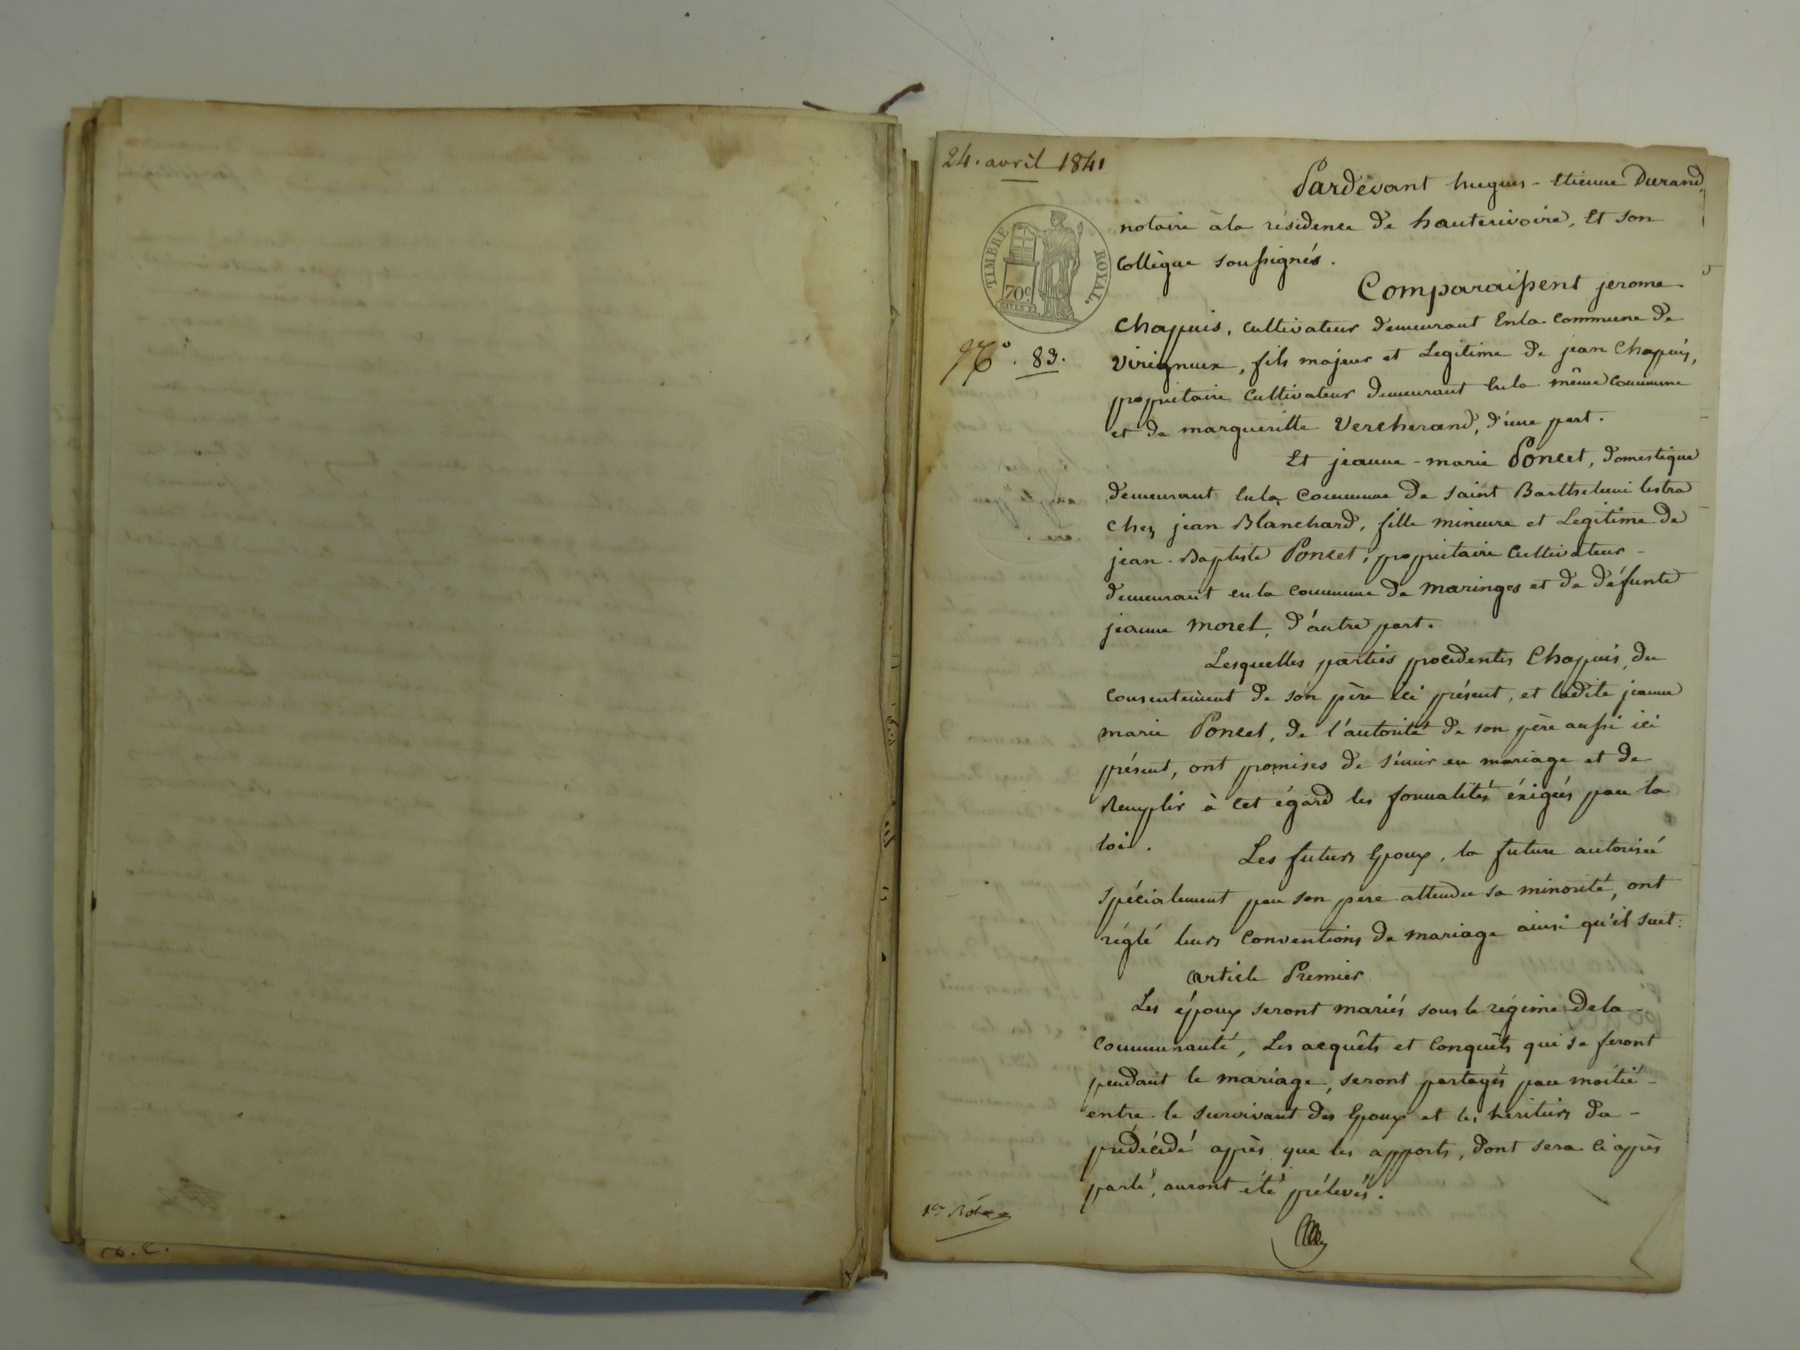 24. avril 1841
Pardevant hugues-Etienne Durand,
notaire à la résidence de hauterivoire, Et son
Collègue soussignés.
TIMBRE ROYAL.
70c
Comparaissent jerome
Chapuis, cultivateur demeurant Enla commune de
N° 83.
Virigneux, fils majeur et Legitime de jean Chapuis,
propriétaire Cultivateur demeurant Enla même Commune
et de margueritte Vercherand, d'une part.
Et jeanne-marie Poncet, domestique
demeurant Enla Commune de saint Barthelemi lestra
Chez jean Blanchard, fille mineure et Legitime de
jean-Baptiste Poncet, propriétaire Cultivateur
demeurant en la commune de maringes et de défunte
jeanne morel, d'autre part.
Lesquelles parties procédentes Chapuis, du
Consentement de son père ici présent, et ladite jeanne
marie Poncet, de l'autorité de son père aussi ici
présent, ont promises de s'unir en mariage et de
Remplir à cet égard les formalités éxigées par la
loi.
Les futurs Epoux, la future autorisée
spécialement par son père attendu sa minorité, ont
réglé leurs Conventions de mariage ainsi qu'il suit:
article Premier
Les époux seront mariés sous le régime de la
Communauté, Les acquêts et Conquêts qui se feront
pendant le mariage, seront partagés par moitié
entre le survivant des Epoux et les héritiers du
prédécédé après que les apports, dont sera ci après
parlé, auront été prélevés.
1er Rôle
D. C.